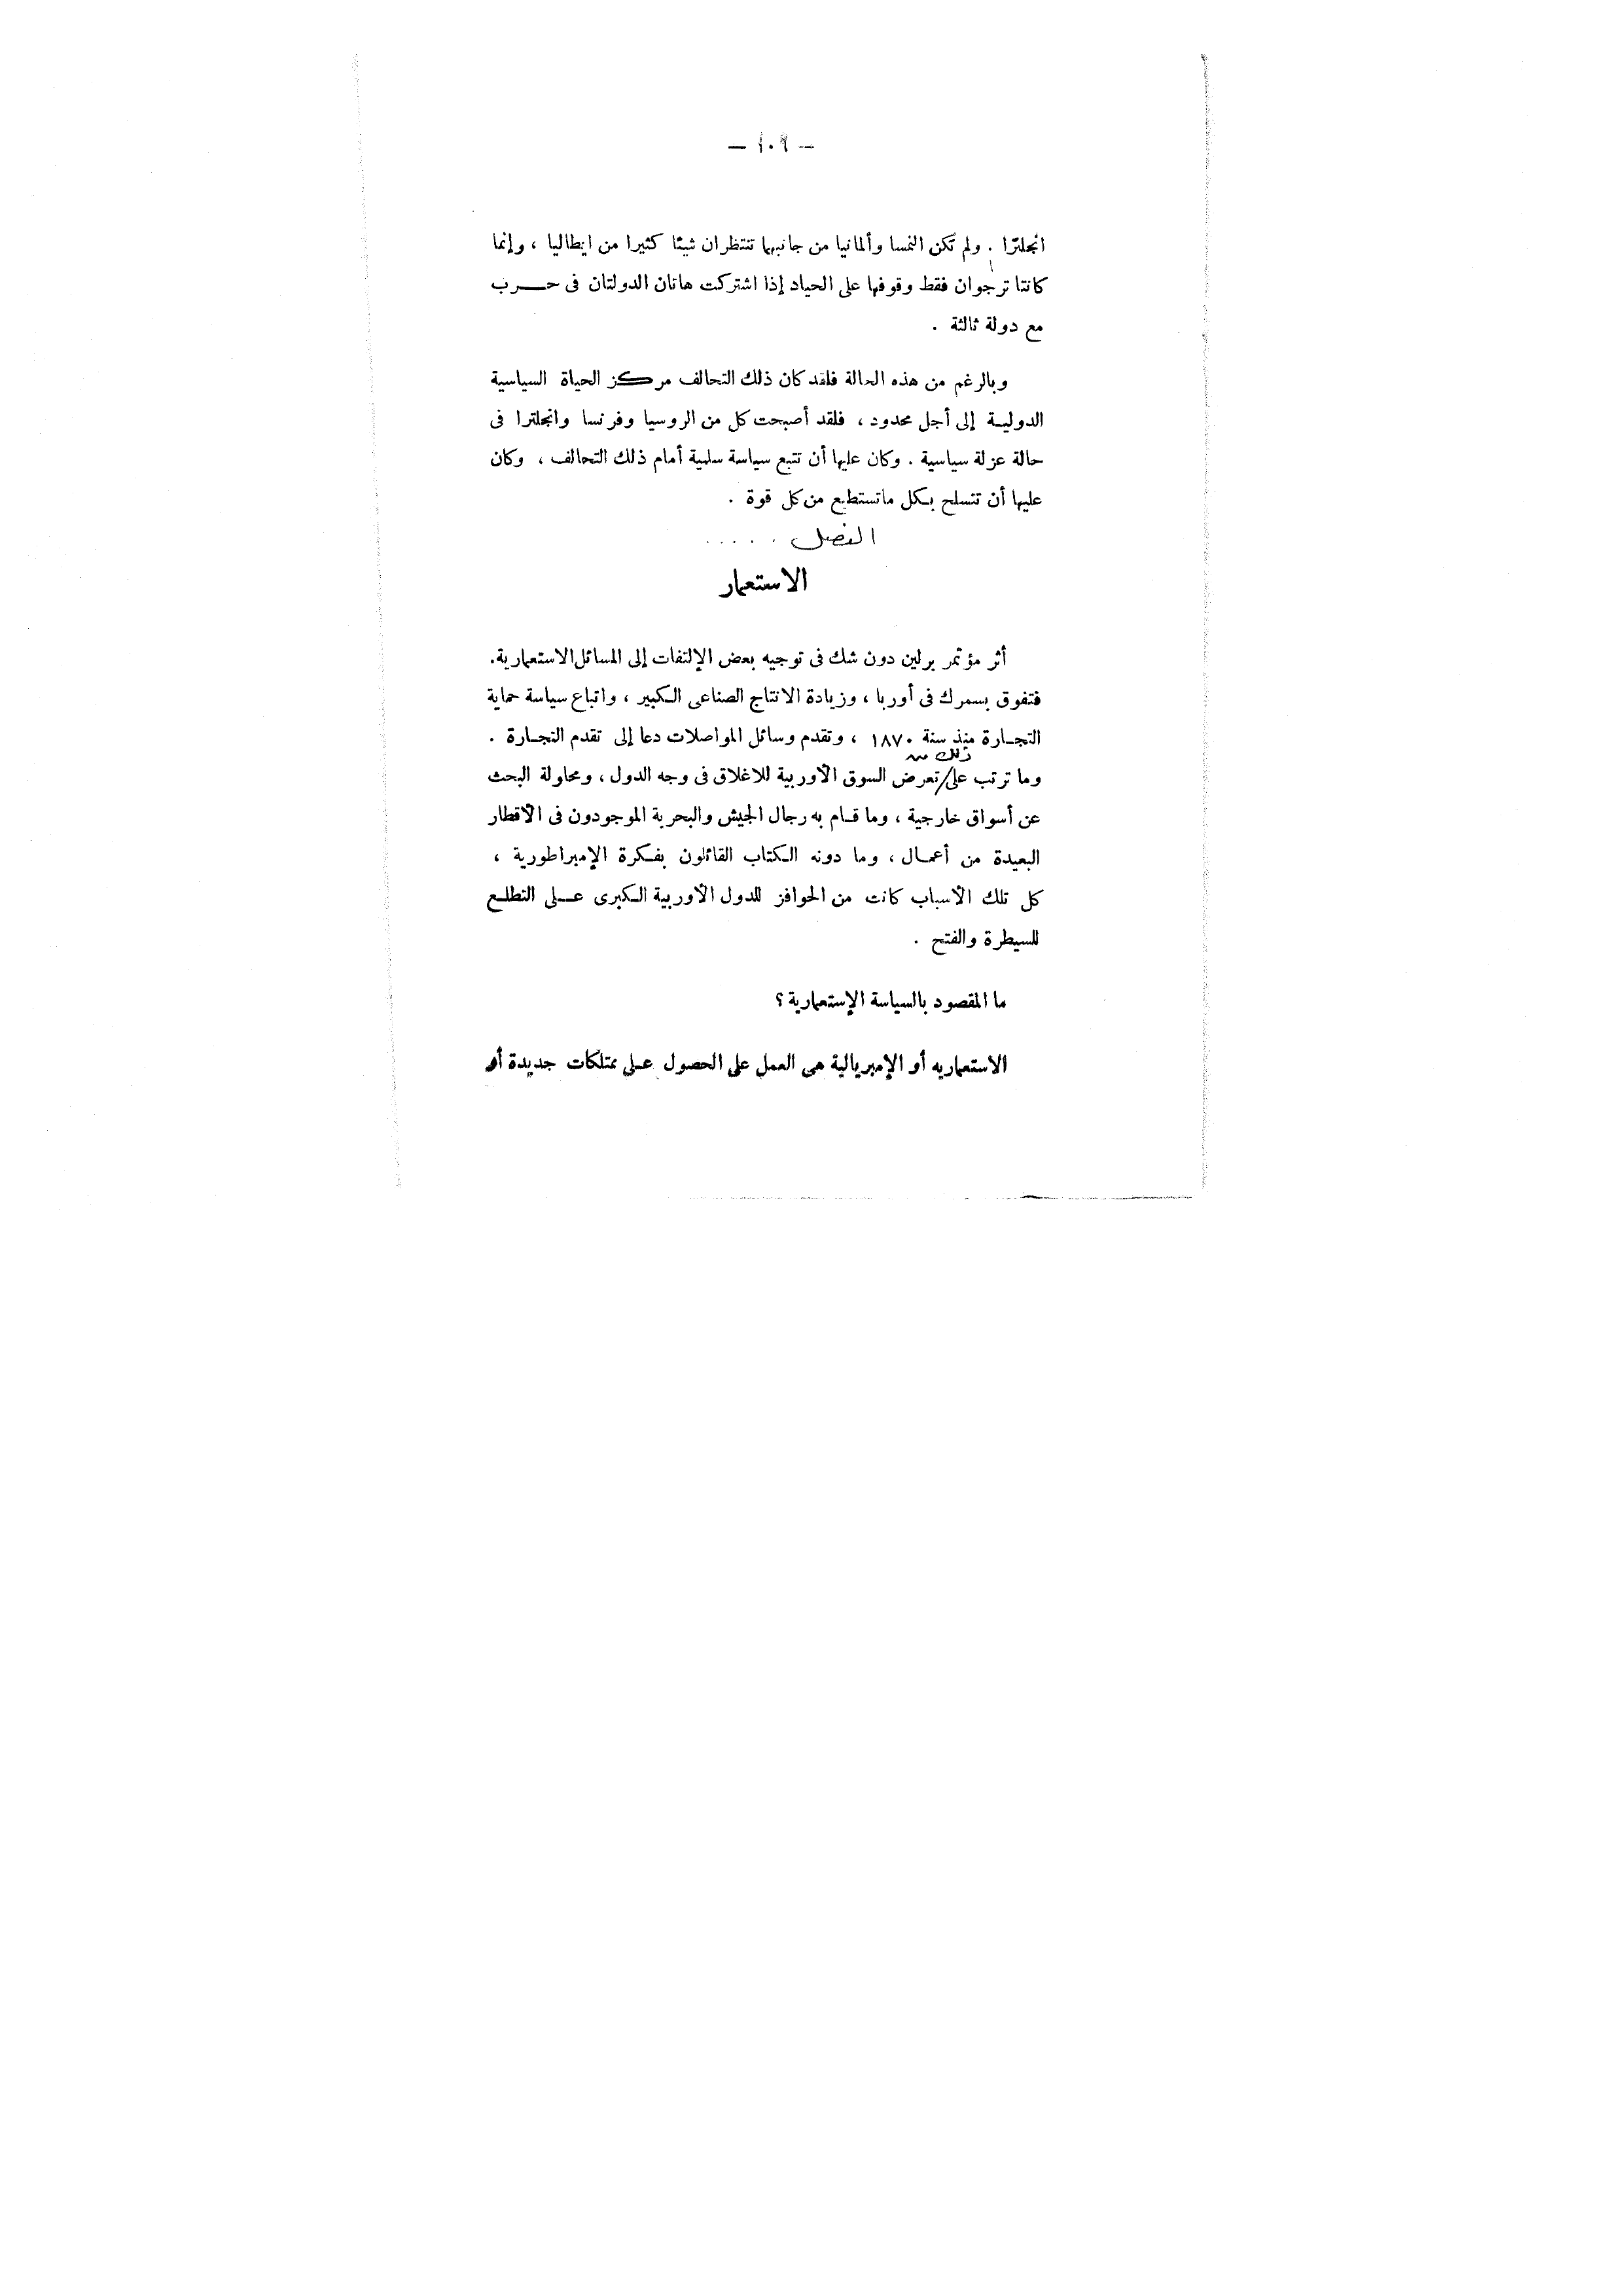 — ١٠٩ —
انجلترا . ولم تكن النمسا وألمانيا من جانبهما تنتظران شيئا كثيرا من ايطاليا ، وإنما
كانتا ترجوان فقط وقوفها على الحياد إذا اشتركت هاتان الدولتان فى حـــرب
مع دولة ثالثة .
وبالرغم من هذه الحالة فلقد كان ذلك التحالف مركز الحياة السياسية
الدوليـة إلى أجل محدود ، فلقد أصبحت كل من الروسيا وفرنسا وانجلترا فى
حالة عزلة سياسية . وكان عليها أن تتبع سياسة سلبية أمام ذلك التحالف ، وكان
عليها أن تتسلح بكل ماتستطيع من كل قوة .
الفصل . . . . .
الاستعمار
أثر مؤتمر برلين دون شك فى توجيه بعض الإلتفات إلى المسائل الاستعمارية.
فتفوق بسمرك فى أوربا ، وزيادة الانتاج الصناعى الكبير ، واتباع سياسة حماية
التجـارة منذ سنة ١٨٧٠ ، وتقدم وسائل المواصلات دعا إلى تقدم التجـارة .
ذلك من
وما ترتب على/تعرض السوق الأوربية للاغلاق فى وجه الدول ، ومحاولة البحث
عن أسواق خارجية ، وما قـام به رجال الجيش والبحرية الموجودون فى الأقطار
البعيدة من أعمـال ، وما دونه الكتاب القائلون بفكرة الإمبراطورية ،
كل تلك الأسباب كانت من الحوافز للدول الأوربية الكبرى عـلى التطلـع
للسيطرة والفتح .
ما المقصود بالسياسة الإستعمارية ؟
الاستعماريه أو الإمبريالية هى العمل على الحصول عـلى ممتلكات جديدة أو